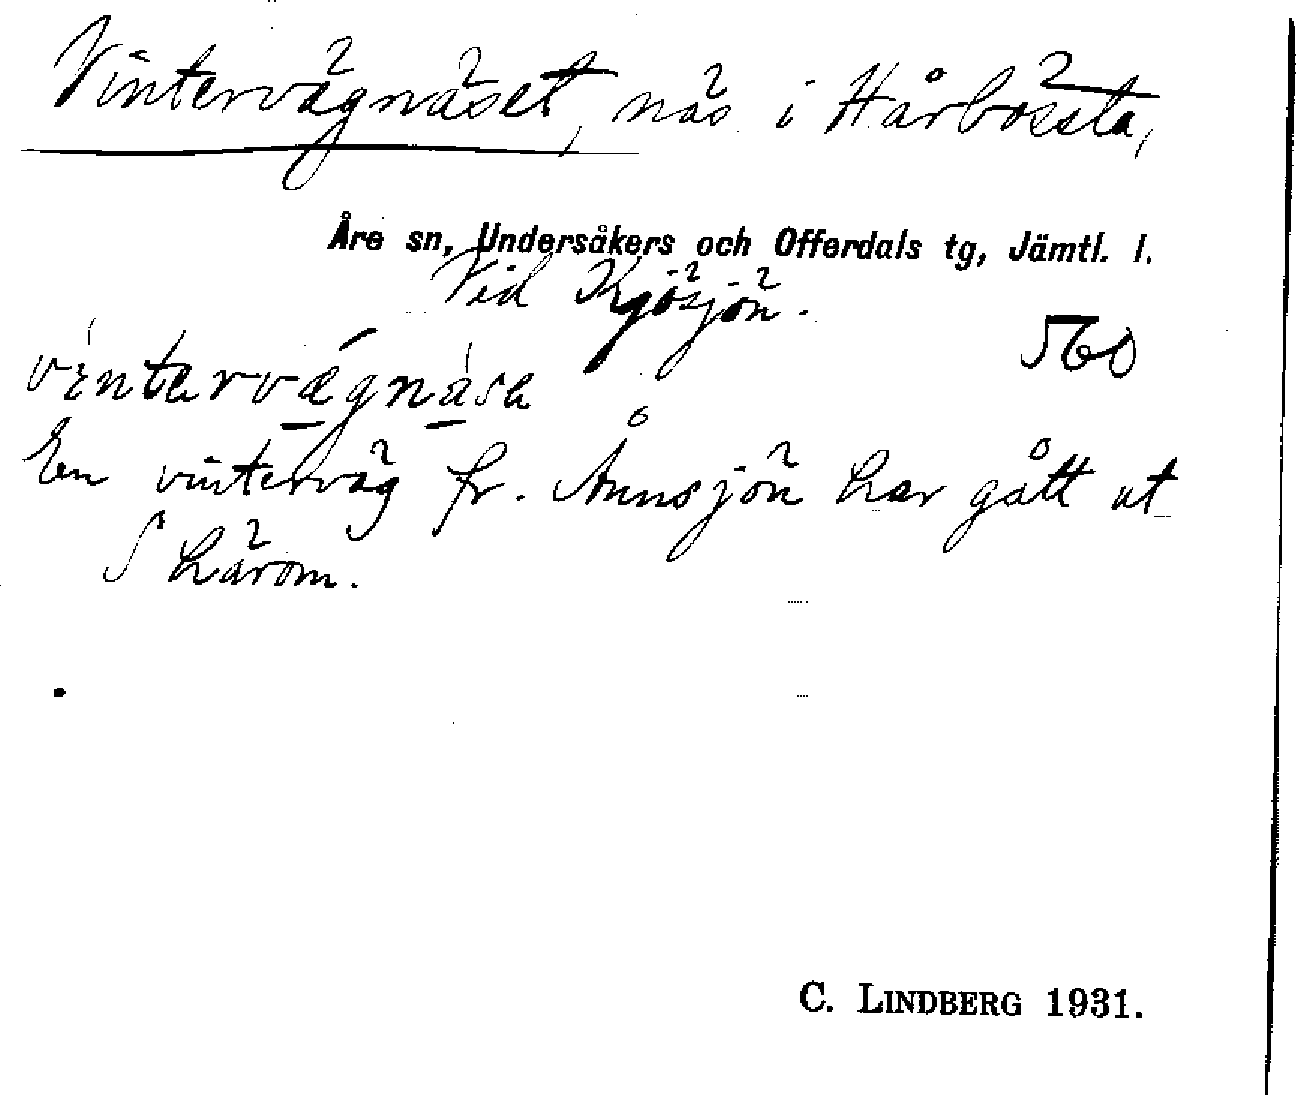 Vintervägnäset, näs i Hårbörsta,
Åre sn, Undersåkers och Offerdals tg, Jämtl. l.
Vid Kjösjön.
560
vintervægnäsa
En vinterväg fr. Ånnsjön har gått ut
härom.
C. LINDBERG 1931.